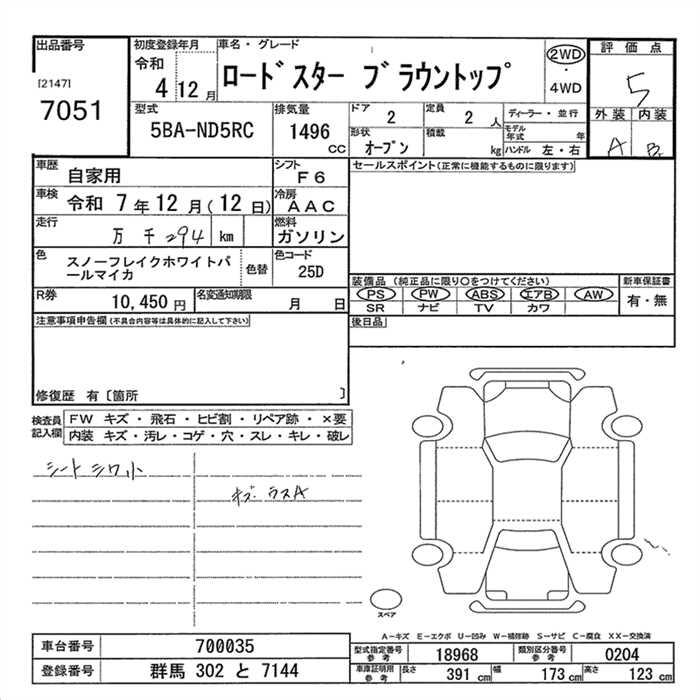 出品番号
[2147]
7051
初度登録年月
令和
4 12月
車名・グレード
ロードスター ブラウントップ
2WD
・
4WD
評価点
5
外装 内装
A B
型式
5BA-ND5RC
排気量
1496
CC
ドア
2
定員
2 人
ディーラー・並行
モデル年式 年
形状
オープン
積載
kg
ハンドル 左・右
車歴
自家用
シフト
F6
車検
令和 7年12月(12日)
冷房
AAC
走行
万 千 294 km
燃料
ガソリン
色
スノーフレイクホワイトパ
ールマイカ
色替
色コード
25D
R券
10,450円
名変通知期限
月 日
セールスポイント(正常に機能するものに限ります)
装備品 (純正品に限り○をつけてください)
PS PW ABS エアB AW
SR ナビ TV カワ
新車保証書
有・無
後日品
注意事項申告欄(不具合内容等は具体的に記入して下さい)
修復歴 有〔箇所 〕
検査員
記入欄
FW キズ・飛石・ヒビ割・リペア跡・×要
内装 キズ・汚レ・コゲ・穴・スレ・キレ・破レ
シートシワ小
スペア
A-キズ E-エクボ U-凹み W-補修跡 S-サビ C-腐食 XX-交換済
車台番号
700035
登録番号
群馬 302 と 7144
型式指定番号
参考
18968
類別区分番号
参考
0204
車庫証明用
参考
長さ
391 cm
幅
173 cm
高さ
123 cm